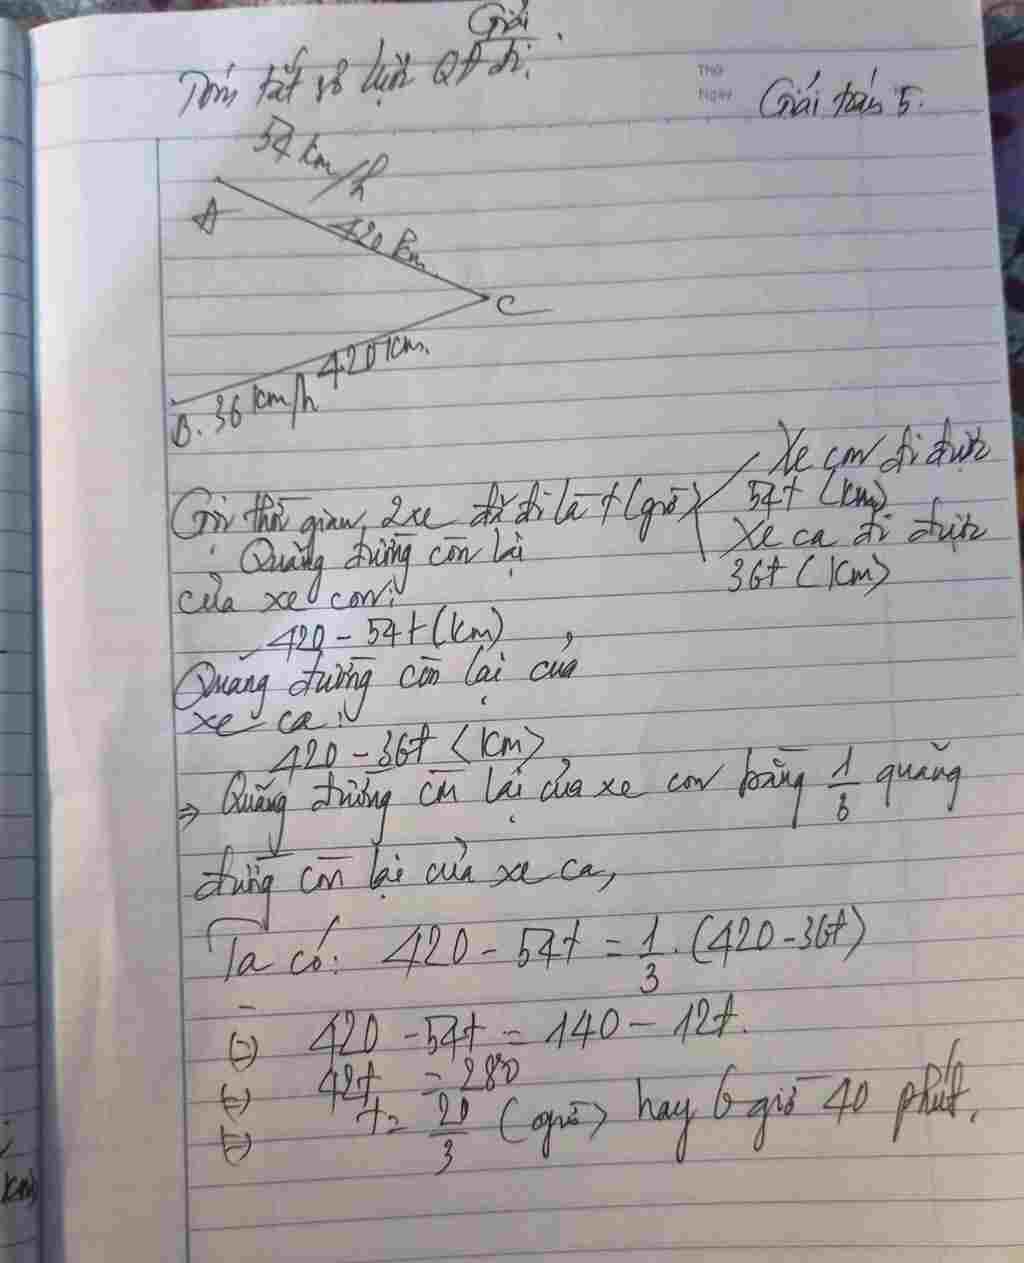 Giải
Tóm tắt số liệu QĐ đi.
Thứ
Ngày
Giải toán 5.
54 km/h
A
420 km.
C
420 km.
B. 36 km/h
Gọi thời gian 2 xe đã đi là t (giờ)
Xe con đi được
54t (km)
Xe ca đi được
36t (km)
Quãng đường còn lại
của xe con:
420 - 54t (km)
Quãng đường còn lại của
xe ca:
420 - 36t (km)
⇒ Quãng đường còn lại của xe con bằng 1/3 quãng
đường còn lại của xe ca,
Ta có: 420 - 54t = 1/3 . (420 - 36t)
(=) 420 - 54t = 140 - 12t.
(=) 42t = 280
(=) t = 20/3 (giờ) hay 6 giờ 40 phút.
km)